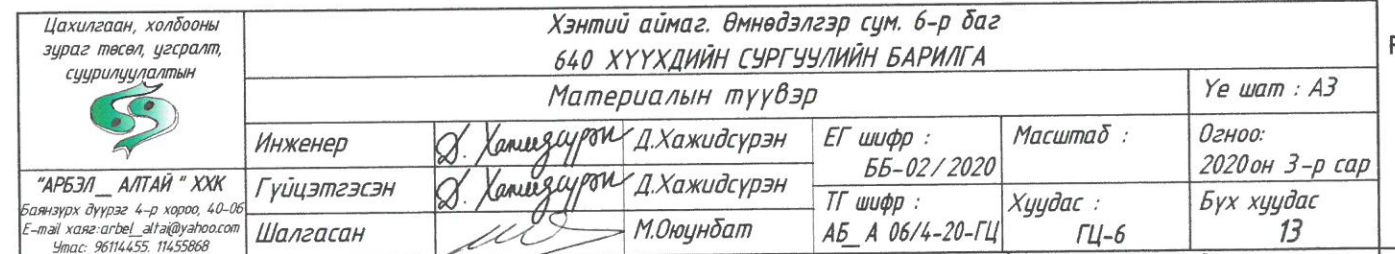 Цахилгаан, холбооны
зураг төсөл, угсралт,
суурилуулалтын
"АРБЭЛ__ АЛТАЙ " ХХК
Баянзүрх дүүрэг 4-р хороо, 40-06
E-mail хаяг:arbel_altai@yahoo.com
Утас: 96114455. 11455868
Хэнтий аймаг. Өмнөдэлгэр сум. 6-р баг
640 ХҮҮХДИЙН СУРГУУЛИЙН БАРИЛГА
Материалын түүвэр
Үе шат : А3
Инженер
Д. Хажидсүрэн
Д.Хажидсүрэн
ЕГ шифр :
ББ-02/2020
Масштаб :
Огноо:
2020он 3-р сар
Гүйцэтгэсэн
Д. Хажидсүрэн
Д.Хажидсүрэн
ТГ шифр :
АБ_ А 06/4-20-ГЦ
Хуудас :
ГЦ-6
Бүх хуудас
13
Шалгасан
М.Оюунбат